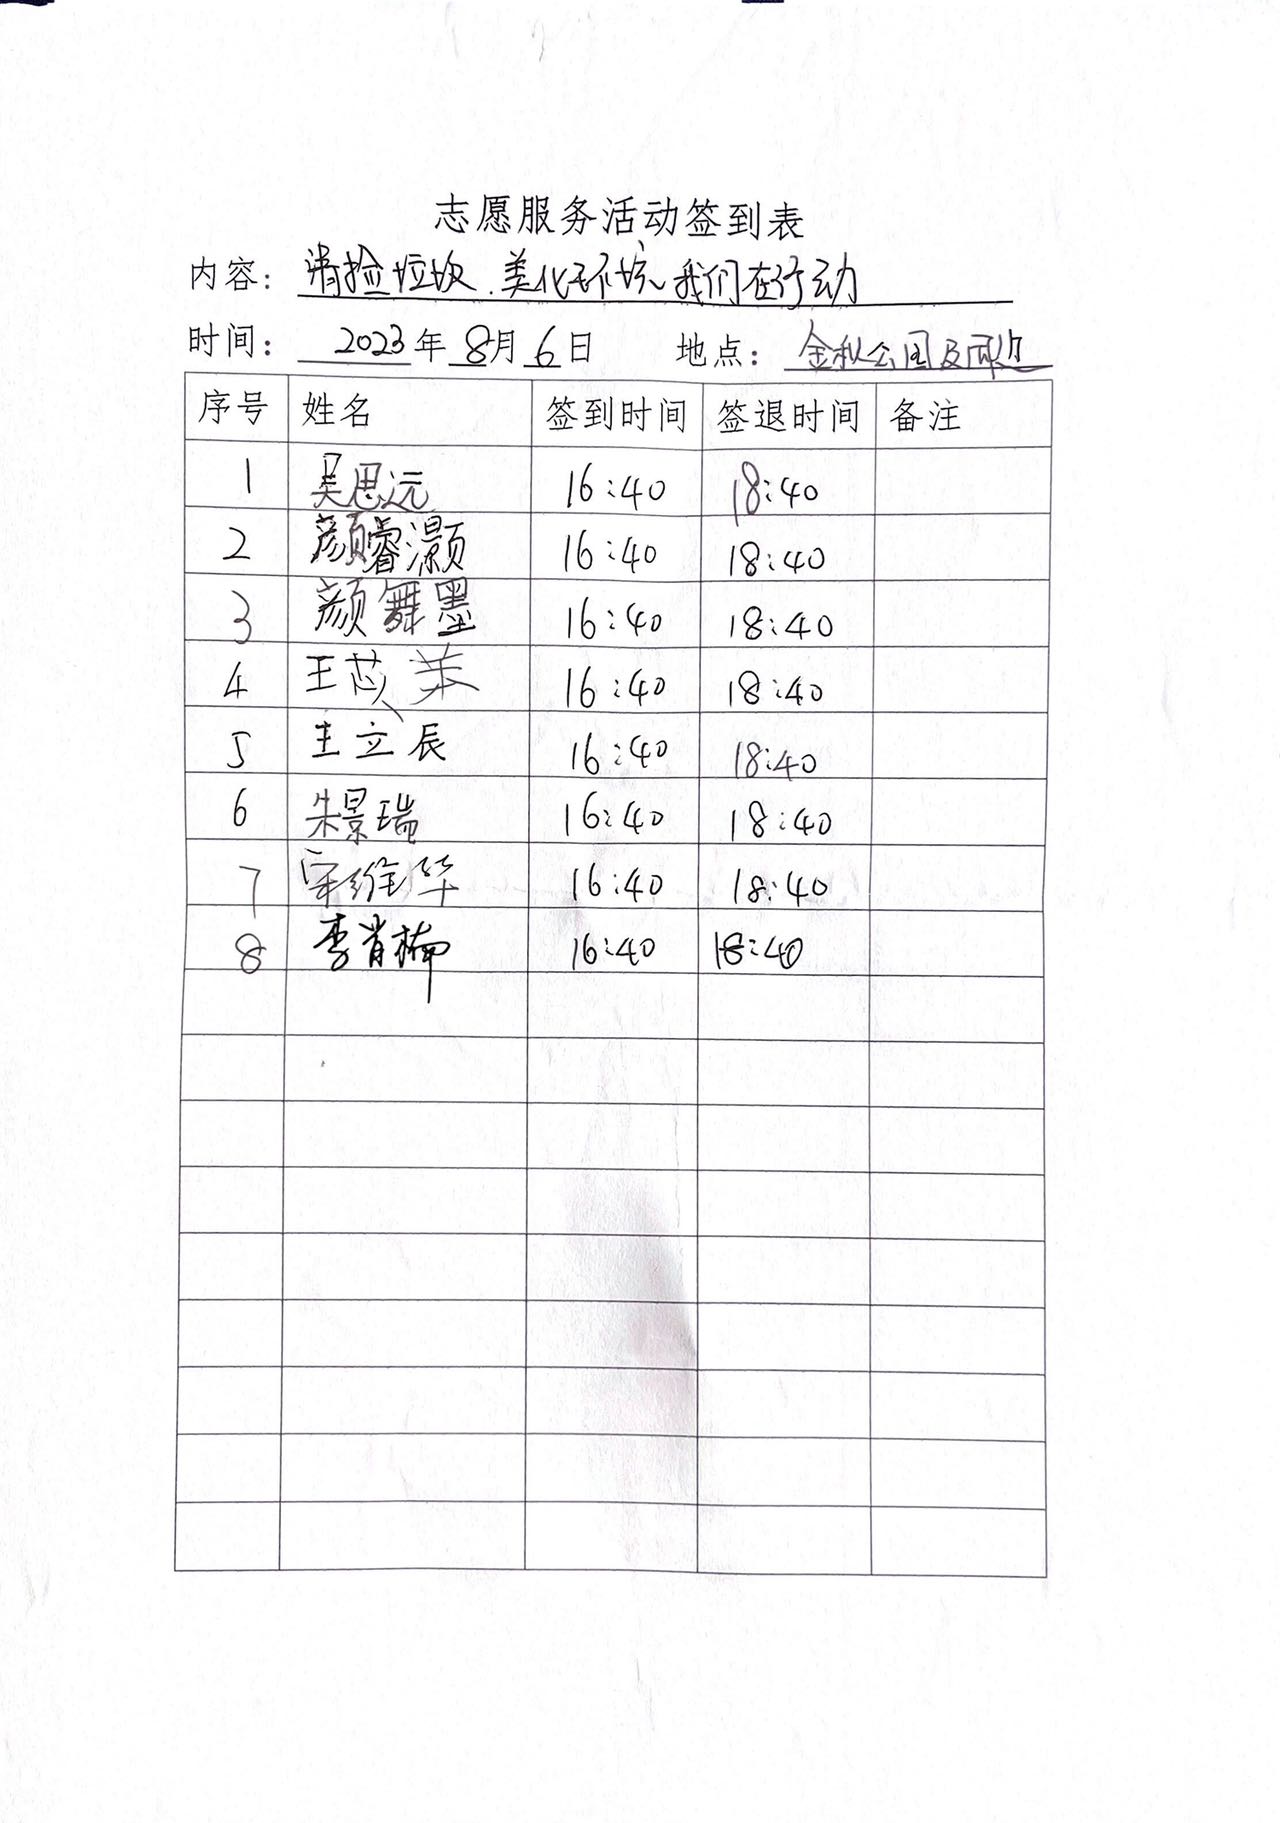 志愿服务活动签到表
内容：清捡垃圾、美化环境、我们在行动
时间：2023年8月6日 地点：金秋公园及两边
序号 姓名 签到时间 签退时间 备注
1 吴思远 16:40 18:40
2 颜睿灏 16:40 18:40
3 颜舞墨 16:40 18:40
4 王芯 16:40 18:40
5 王立辰 16:40 18:40
6 朱景瑞 16:40 18:40
7 宋维华 16:40 18:40
8 李肖楠 16:40 18:40